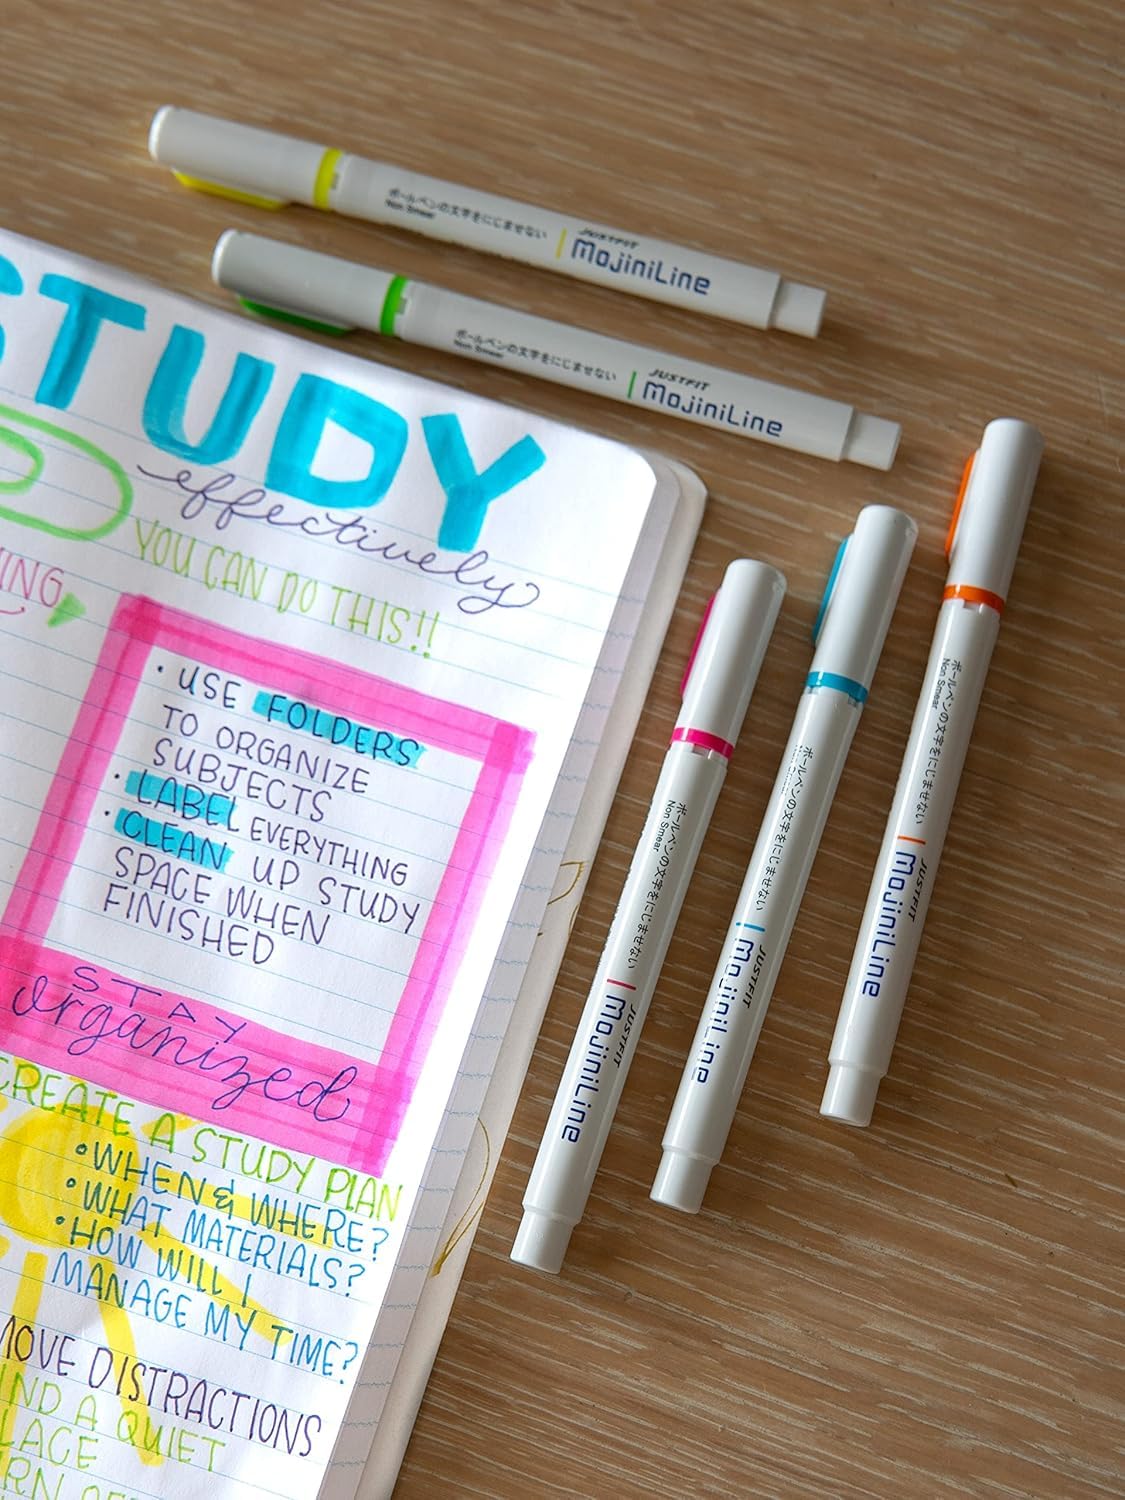 STUDY
effectively
YOU CAN DO THIS!!
• USE FOLDERS
TO ORGANIZE
SUBJECTS
• LABEL EVERYTHING
• CLEAN UP STUDY
SPACE WHEN
FINISHED
STAY
organized
CREATE A STUDY PLAN
• WHEN & WHERE?
• WHAT MATERIALS?
• HOW WILL I
MANAGE MY TIME?
DISTRACTIONS
A QUIET
ボールペンの文字をにじませない
Non Smear
JUSTFIT
MojiniLine
ボールペンの文字をにじませない
Non Smear
JUSTFIT
MojiniLine
ボールペンの文字をにじませない
Non Smear
JUSTFIT
MojiniLine
ボールペンの文字をにじませない
Non Smear
JUSTFIT
MojiniLine
ボールペンの文字をにじませない
Non Smear
JUSTFIT
MojiniLine